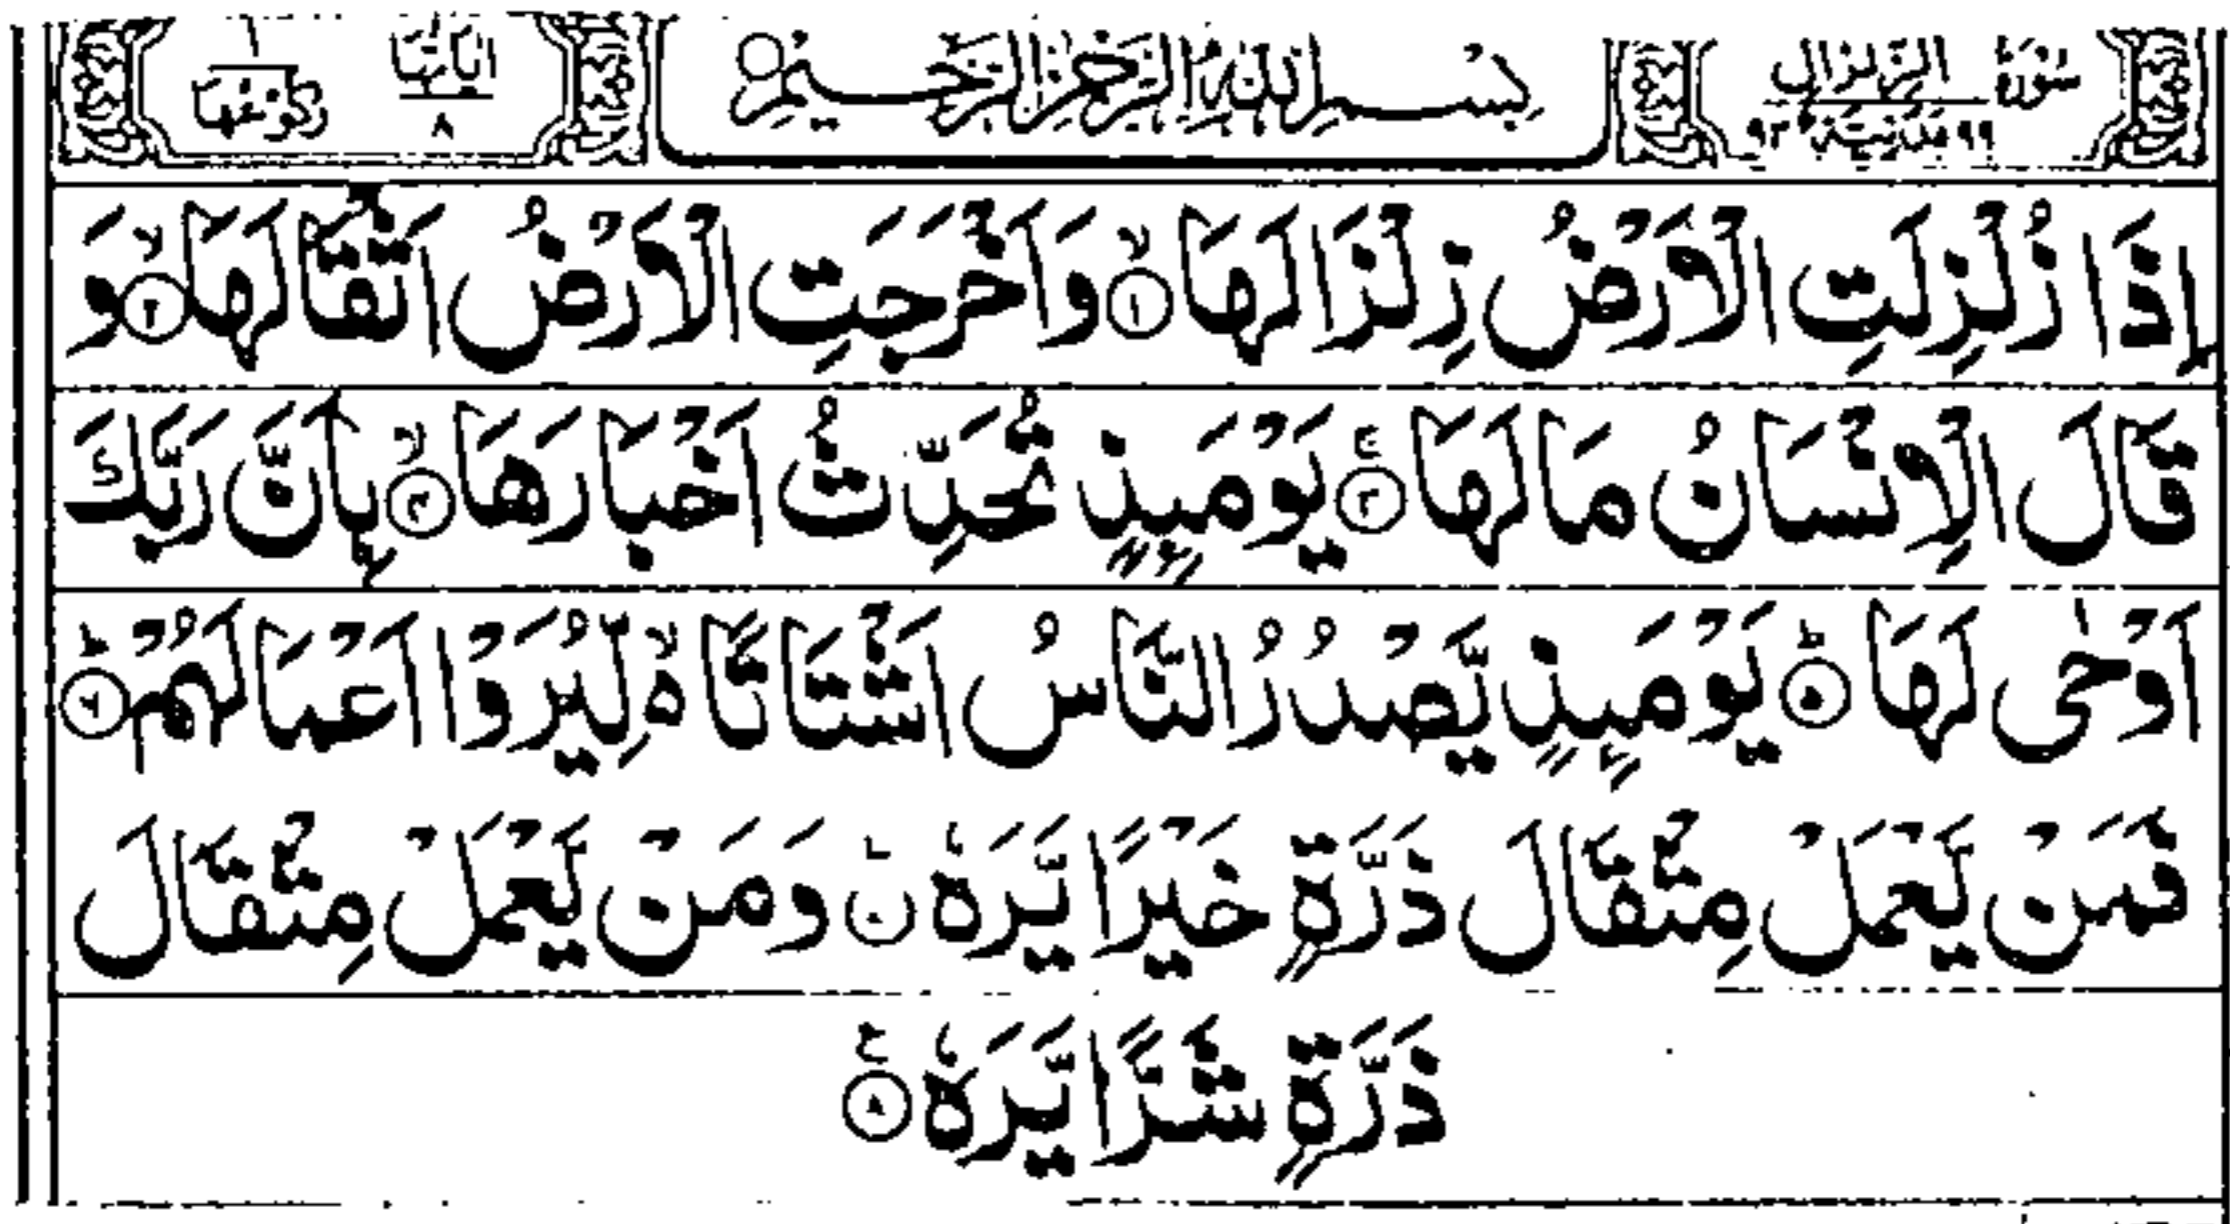 سُوْرَةُ الزِّلْزَالِ ٩٩ مَدَنِيَّةٌ ٩٣
بِسْمِ اللّٰهِ الرَّحْمٰنِ الرَّحِيْمِ ○
اٰيَاتُهَا ٨ رُكُوْعُهَا ١
اِذَا زُلْزِلَتِ الْاَرْضُ زِلْزَالَهَا ۙ﴿١﴾ وَاَخْرَجَتِ الْاَرْضُ اَثْقَالَهَا ۙ﴿٢﴾ وَ
قَالَ الْاِنْسَانُ مَا لَهَا ۚ﴿٣﴾ يَوْمَىِٕذٍ تُحَدِّثُ اَخْبَارَهَا ۙ﴿٤﴾ بِاَنَّ رَبَّكَ
اَوْحٰى لَهَا ؕ﴿٥﴾ يَوْمَىِٕذٍ يَّصْدُرُ النَّاسُ اَشْتَاتًا ۙ۬ لِّيُرَوْا اَعْمَالَهُمْ ؕ﴿٦﴾
فَمَنْ يَّعْمَلْ مِثْقَالَ ذَرَّةٍ خَيْرًا يَّرَهٗ ؕ﴿٧﴾ وَمَنْ يَّعْمَلْ مِثْقَالَ
ذَرَّةٍ شَرًّا يَّرَهٗ ﴿٨﴾ ع